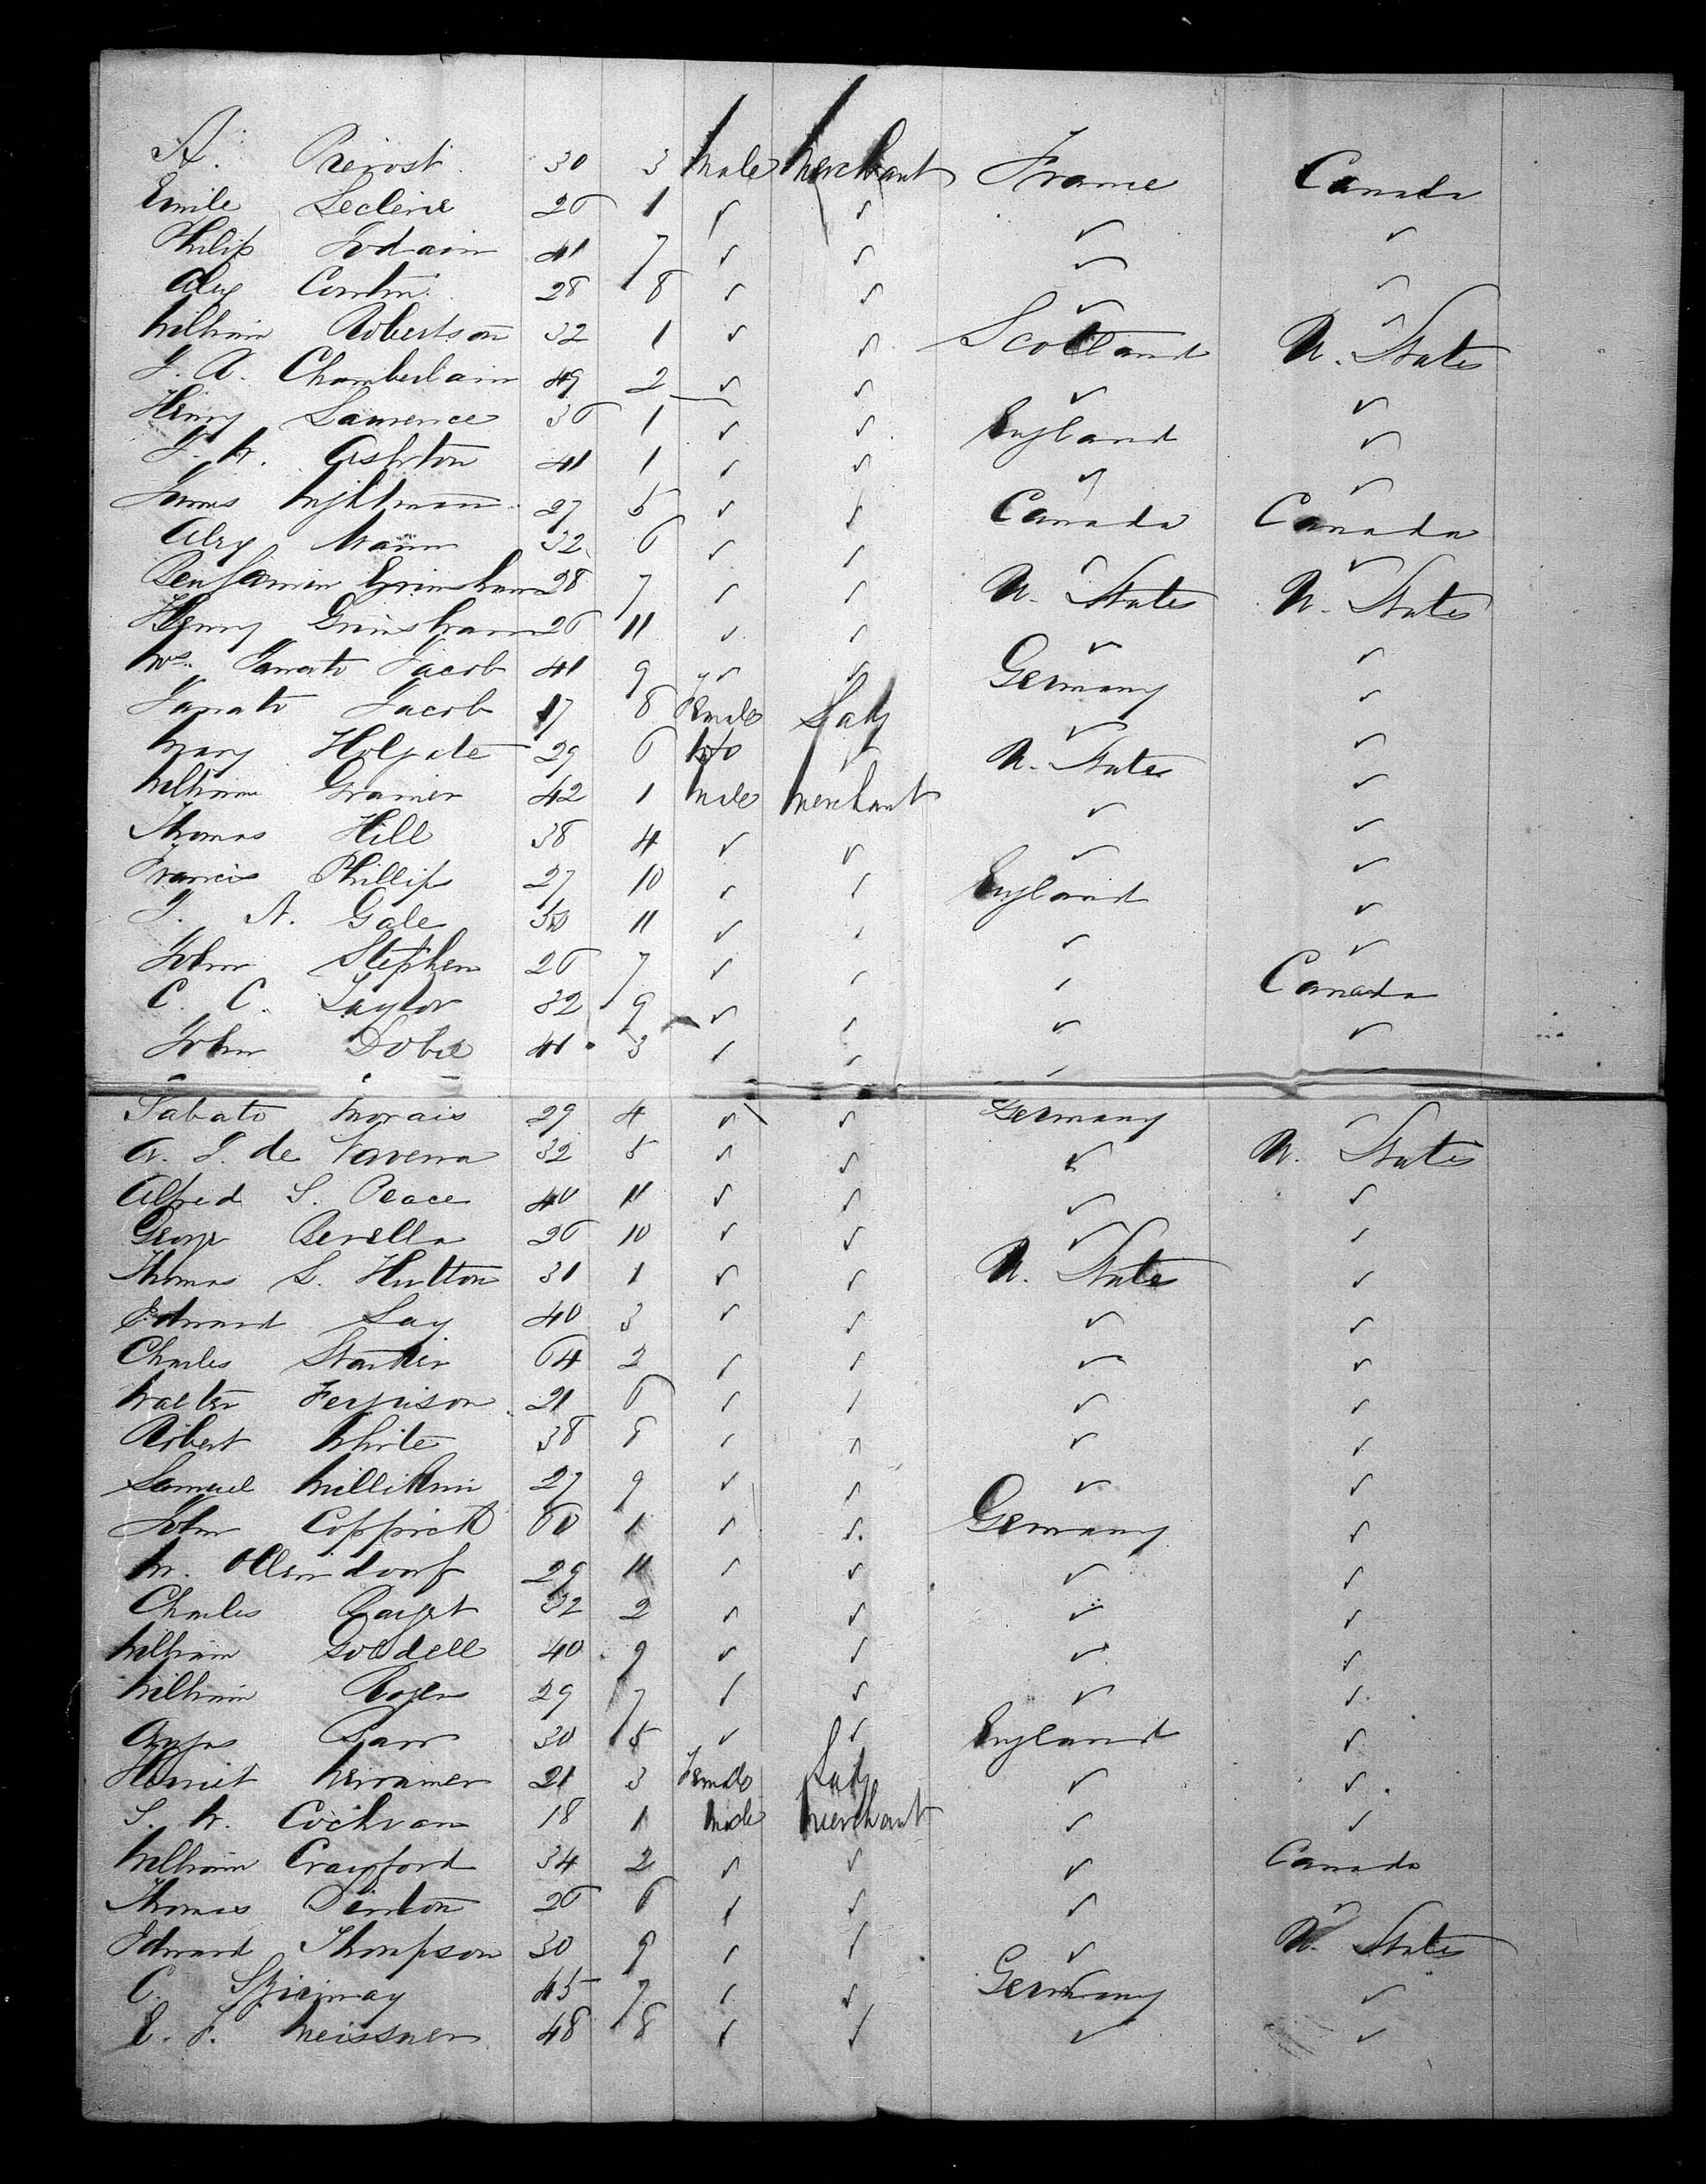 A. Prevost 30 3 Male Merchant France Canada
Emile Leclerie 26 1 ✓ ✓ ✓ ✓
Philip Jodain 41 7 ✓ ✓ ✓ ✓
Alex 28 8 ✓ ✓ ✓ ✓
William Robertson 32 1 ✓ ✓ Scotland U. States
J. A. Chamberlain 49 2 ✓ ✓ ✓ ✓
Henry Lawrence 36 1 ✓ ✓ England ✓
J. W. Ashton 41 1 ✓ ✓ ✓ ✓
James Wightman 27 5 ✓ ✓ Canada Canada
Alex Mann 32 6 ✓ ✓ ✓ ✓
Benjamin Grimshaw 28 7 ✓ ✓ U. States U. States
Henry Grimshaw 26 11 ✓ ✓ ✓ ✓
Jacob 41 9 ✓ ✓ Germany ✓
Jacob 17 8 Female Lady ✓ ✓
Mary Holgate 29 6 ✓ U. States ✓
William Gramer 42 1 Male Merchant ✓ ✓
Thomas Hill 38 4 ✓ ✓ ✓ ✓
Francis Phillips 27 10 ✓ ✓ England ✓
J. A. Gale 11 ✓ ✓ ✓ ✓
John Stephen 26 7 ✓ ✓ ✓ Canada
C. C. Taylor 32 9 ✓ ✓ ✓ ✓
John Dobie 41 3 ✓ ✓ ✓ ✓
Sabato Morais 29 4 ✓ ✓ Germany ✓
A. J. de 32 5 ✓ ✓ ✓ U. States
Alfred S. Peace 40 11 ✓ ✓ ✓ ✓
George Berella 26 10 ✓ ✓ ✓ ✓
Thomas L. Hutton 31 1 ✓ ✓ U. States ✓
Edward Lay 40 3 ✓ ✓ ✓ ✓
Charles 64 2 ✓ ✓ ✓ ✓
Walter Ferguison 21 6 ✓ ✓ ✓ ✓
Robert White 38 8 ✓ ✓ ✓ ✓
Samuel Millikin 27 9 ✓ ✓ ✓ ✓
John Coppick 60 1 ✓ ✓ Germany ✓
M. Ollendorf 29 11 ✓ ✓ ✓ ✓
Charles 32 2 ✓ ✓ ✓ ✓
William Goodell 40 9 ✓ ✓ ✓ ✓
William Rogers 29 7 ✓ ✓ ✓ ✓
Angus 30 5 ✓ ✓ England ✓
Harriet 21 3 Female Lady ✓ ✓
S. W. Cochran 18 1 Male Merchant ✓ ✓
William Crawford 34 2 ✓ ✓ ✓ Canada
Thomas Dinton 26 6 ✓ ✓ ✓ ✓
Edward Thompson 30 9 ✓ ✓ ✓ U. States
C. 45 7 ✓ ✓ Germany ✓
E. F. Meissner 48 8 ✓ ✓ ✓ ✓